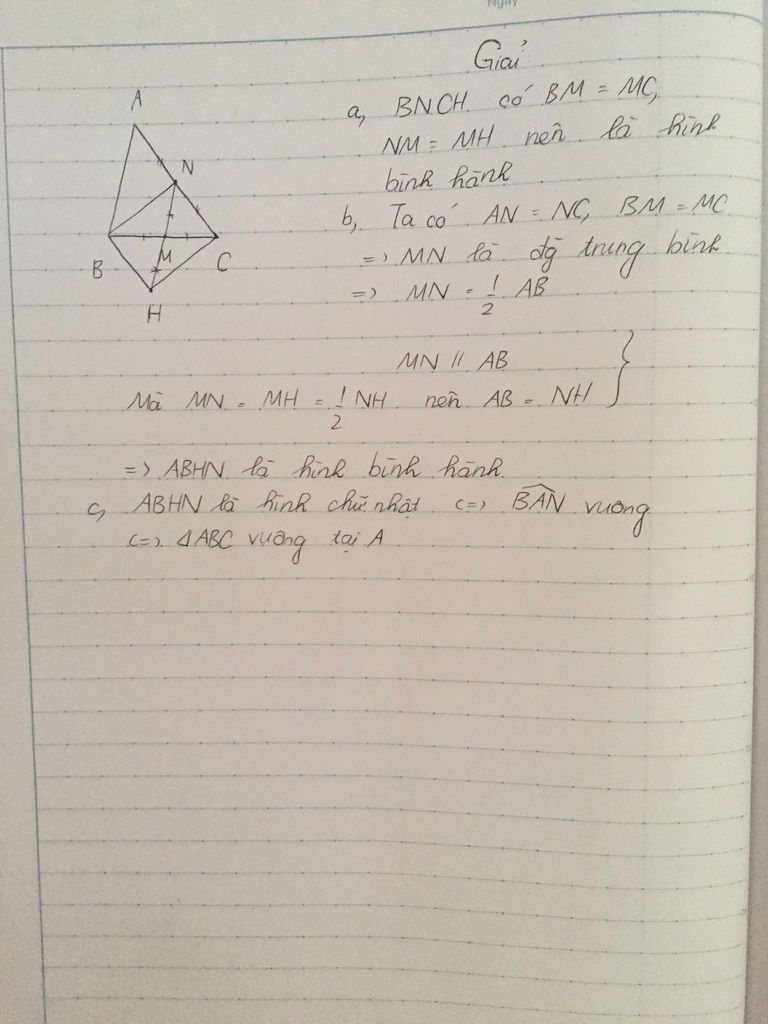 Ngày
Giải
A
N
B
M
C
H
a, BNCH có BM = MC,
NM = MH nên là hình
bình hành
b, Ta có AN = NC, BM = MC
=> MN là đg trung bình
=> MN = 1/2 AB
MN // AB
Mà MN = MH = 1/2 NH nên AB = NH
=> ABHN là hình bình hành
c, ABHN là hình chữ nhật <=> BAN vuông
<=> ΔABC vuông tại A